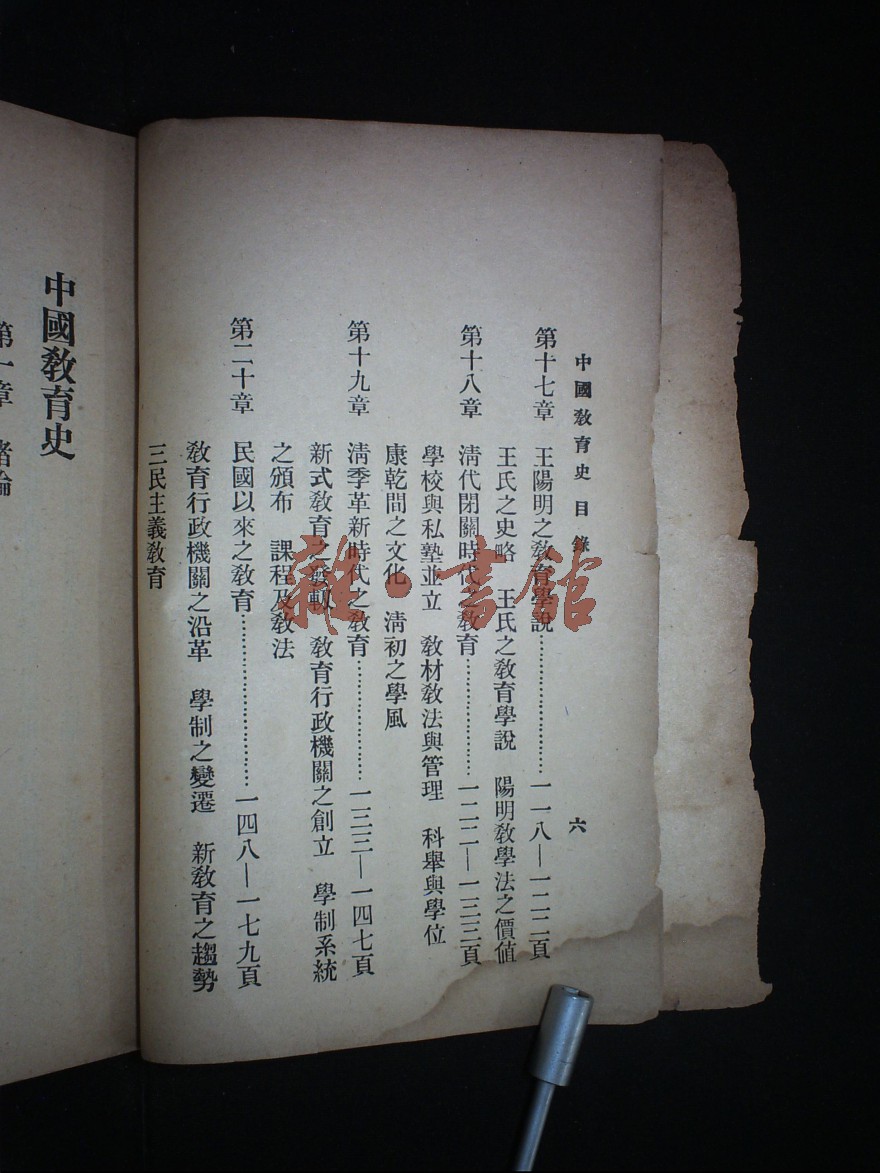 中國敎育史 目錄 六
第十七章 王陽明之敎育學說……………………一一八—一二二頁
王氏之史略 王氏之敎育學說 陽明敎學法之價値
第十八章 淸代閉關時代之敎育……………………一二二—一三三頁
學校與私塾並立 敎材敎法與管理 科舉與學位
康乾間之文化 淸初之學風
第十九章 淸季革新時代之敎育……………………一三三—一四七頁
新式敎育之發軔 敎育行政機關之創立 學制系統
之頒布 課程及敎法
第二十章 民國以來之敎育……………………一四八—一七九頁
敎育行政機關之沿革 學制之變遷 新敎育之趨勢
三民主義敎育
中國敎育史
第一章 緒論
雜·書館